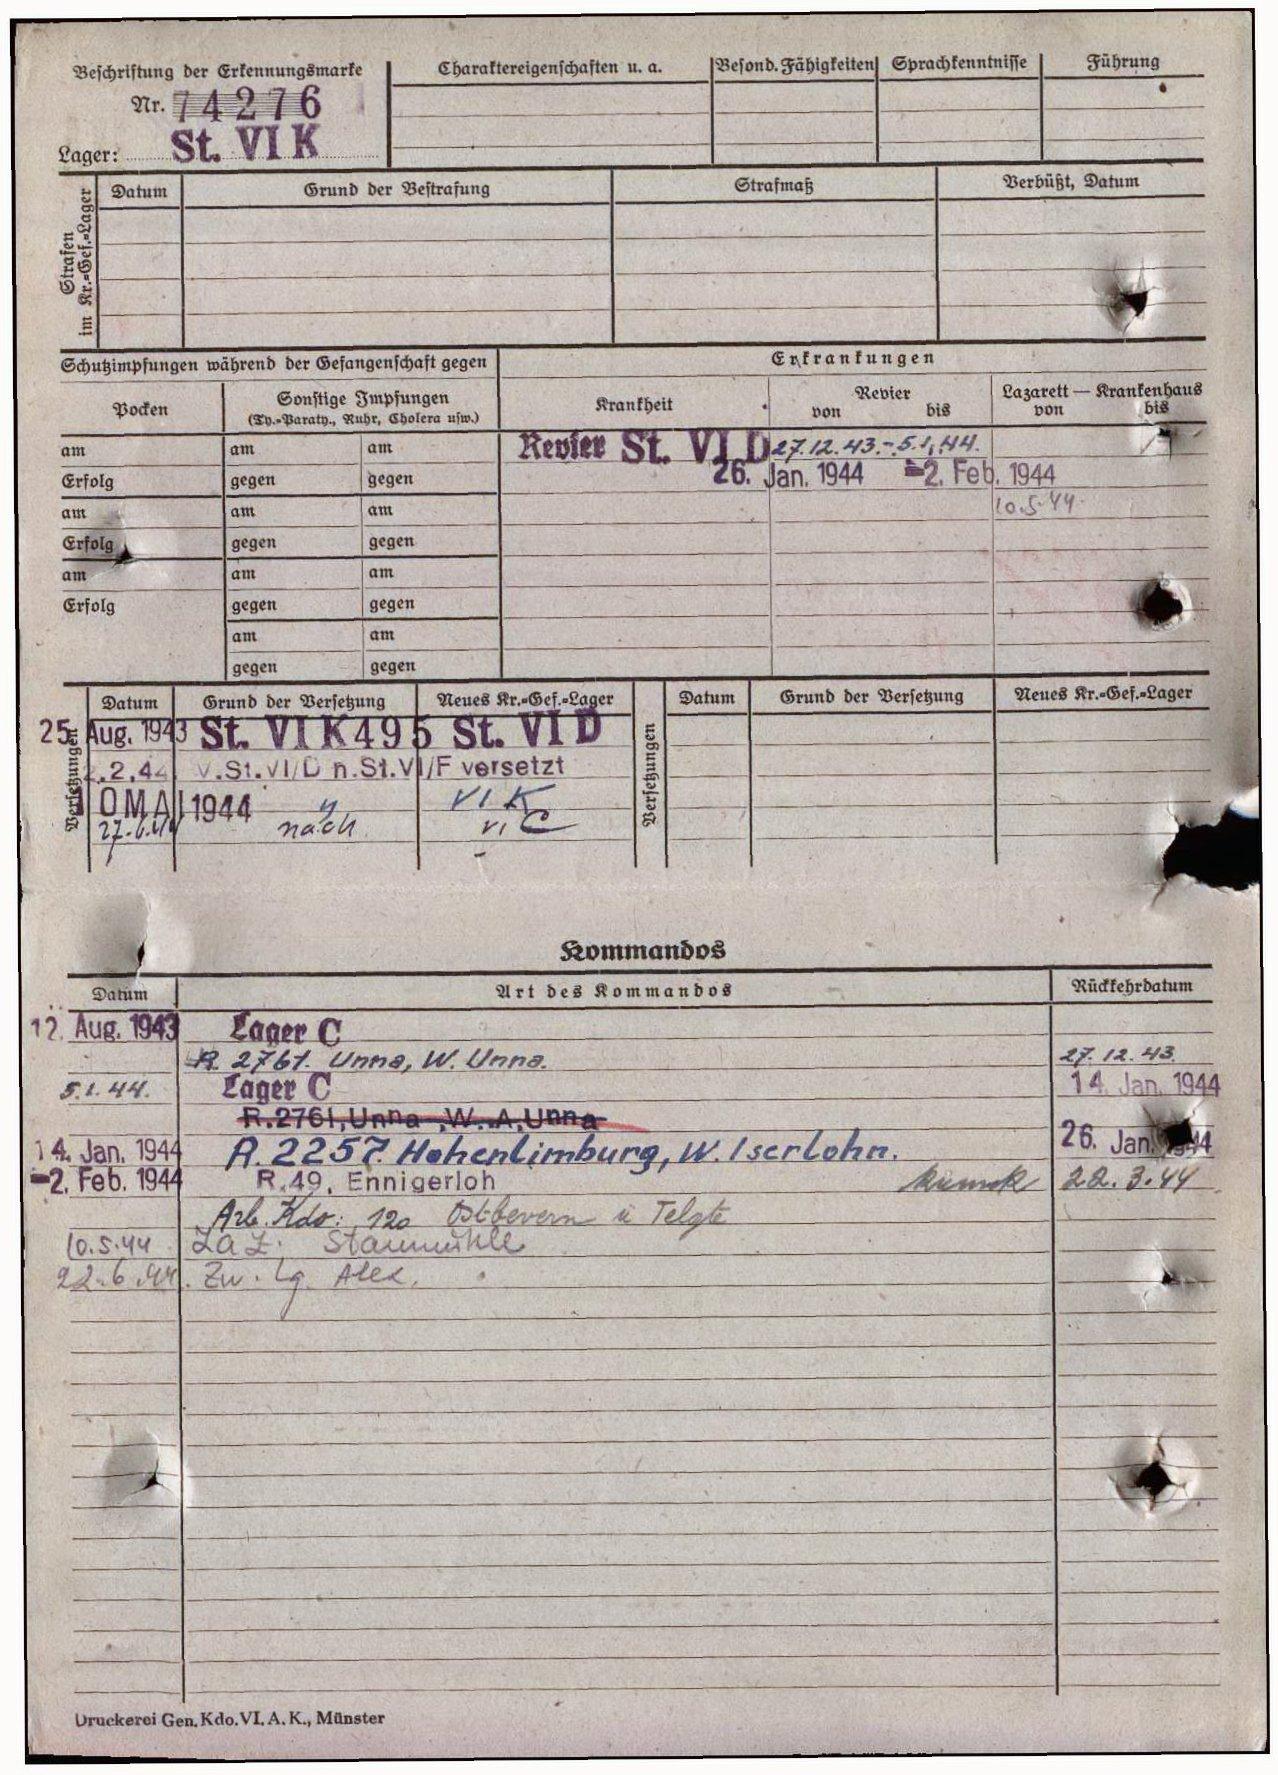 Beschriftung der Erkennungsmarke
Nr. 74276
Lager: St. VI K
Charaktereigenschaften u. a.
Besond. Fähigkeiten
Sprachkenntnisse
Führung
Strafen im Kr.=Gef.=Lager
Datum
Grund der Bestrafung
Strafmaß
Verbüßt, Datum
Schutzimpfungen während der Gefangenschaft gegen
Erkrankungen
Pocken
Sonstige Impfungen
(Ty.=Paraty., Ruhr, Cholera usw.)
Krankheit
Revier
von bis
Lazarett — Krankenhaus
von bis
am am am
Revier St. VI D 27.12.43.-5.1.44.
Erfolg gegen gegen
26. Jan. 1944 -2. Feb. 1944
am am am
10.5.44
Erfolg gegen gegen
am am am
Erfolg gegen gegen
am am
gegen gegen
Versetzungen
Datum Grund der Versetzung Neues Kr.=Gef.=Lager
25. Aug. 1943 St. VI K 495 St. VI D
2.2.44 v.St.VI/D n.St.VI/F versetzt
10 MAI 1944 " VI K
27.6.44 nach VI C
Versetzungen
Datum Grund der Versetzung Neues Kr.=Gef.=Lager
Kommandos
Datum Art des Kommandos Rückkehrdatum
12. Aug. 1943 Lager C
R. 2761. Unna, W. Unna. 27.12.43.
5.1.44. Lager C 14. Jan. 1944
R.2761,Unna ,W. A,Unna
14. Jan. 1944 R. 2257. Hohenlimburg, W. Iserlohn. 26. Jan. 1944
-2. Feb. 1944 R.49, Ennigerloh 22.3.44
Arb. Kdo: 120 Ostbevern u Telgte
10.5.44 Laz. Staumühle
22.6.44. Zw. Lg. Alex.
Druckerei Gen. Kdo. VI. A. K., Münster